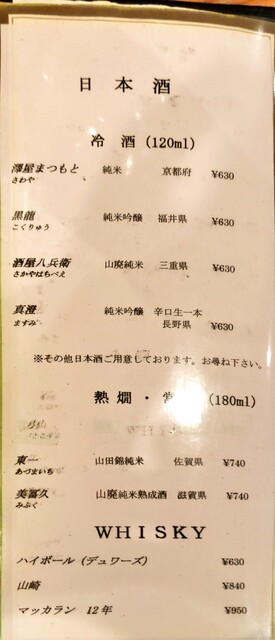 日本酒
冷酒 (120ml)
澤屋まつもと 純米 京都府 ¥630
さわや
黒龍 純米吟醸 福井県 ¥630
こくりゅう
酒屋八兵衛 山廃純米 三重県 ¥630
さかやはちべえ
真澄 純米吟醸 辛口生一本
ますみ 長野県 ¥630
※その他日本酒ご用意しております。お尋ね下さい。
熱燗・常 (180ml)
東一 山田錦純米 佐賀県 ¥740
あづまいち
美冨久 山廃純米熟成酒 滋賀県 ¥740
みふく
WHISKY
ハイボール (デュワーズ) ¥630
山崎 ¥840
マッカラン 12年 ¥950